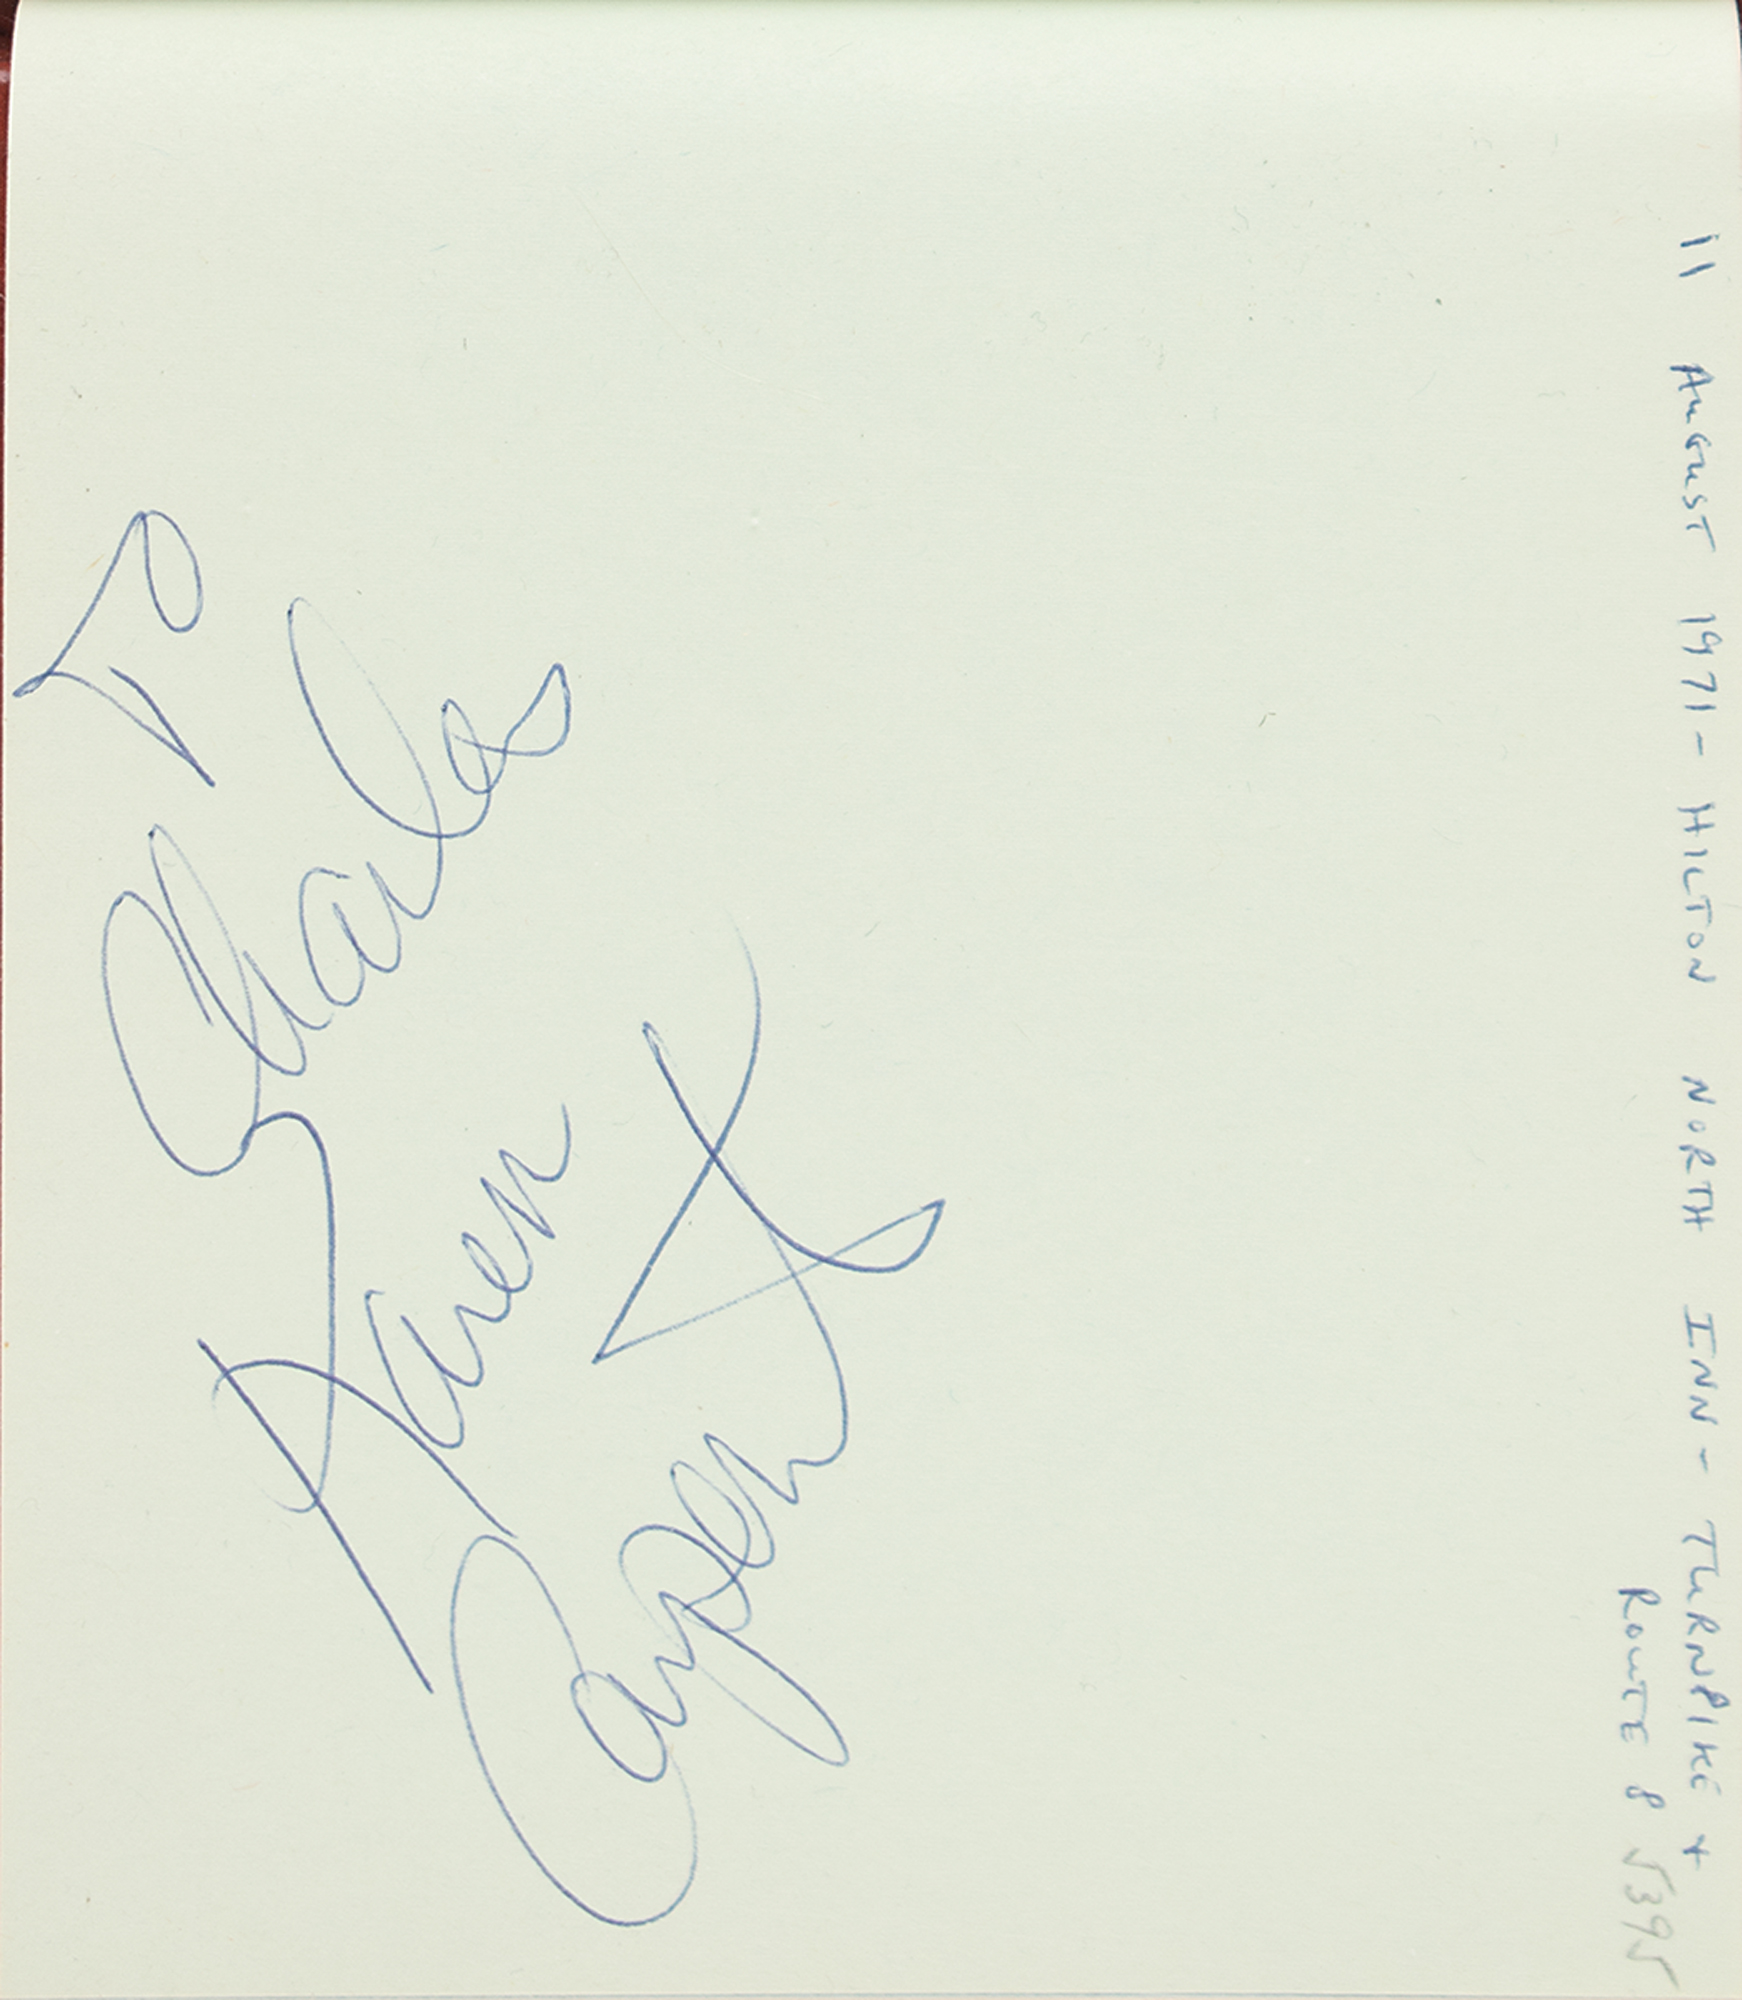 To
Charles
Karen
Carpenter
11 AUGUST 1971 - HILTON NORTH INN - TURNPIKE +
ROUTE 8 5395